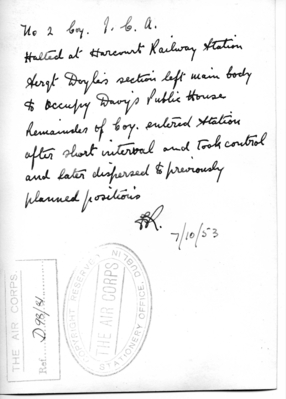 No 2 Coy. I. C. A.
Halted at Harcourt Railway Station
Sergt Doyle's section left main body
to occupy Davy's Public House
Remainder of Coy. entered Station
after short interval and took control
and later dispersed to previously
planned positions
7/10/53
THE AIR CORPS
Ref.
COPYRIGHT RESERVED
THE AIR CORPS
STATIONERY OFFICE, DUBLIN